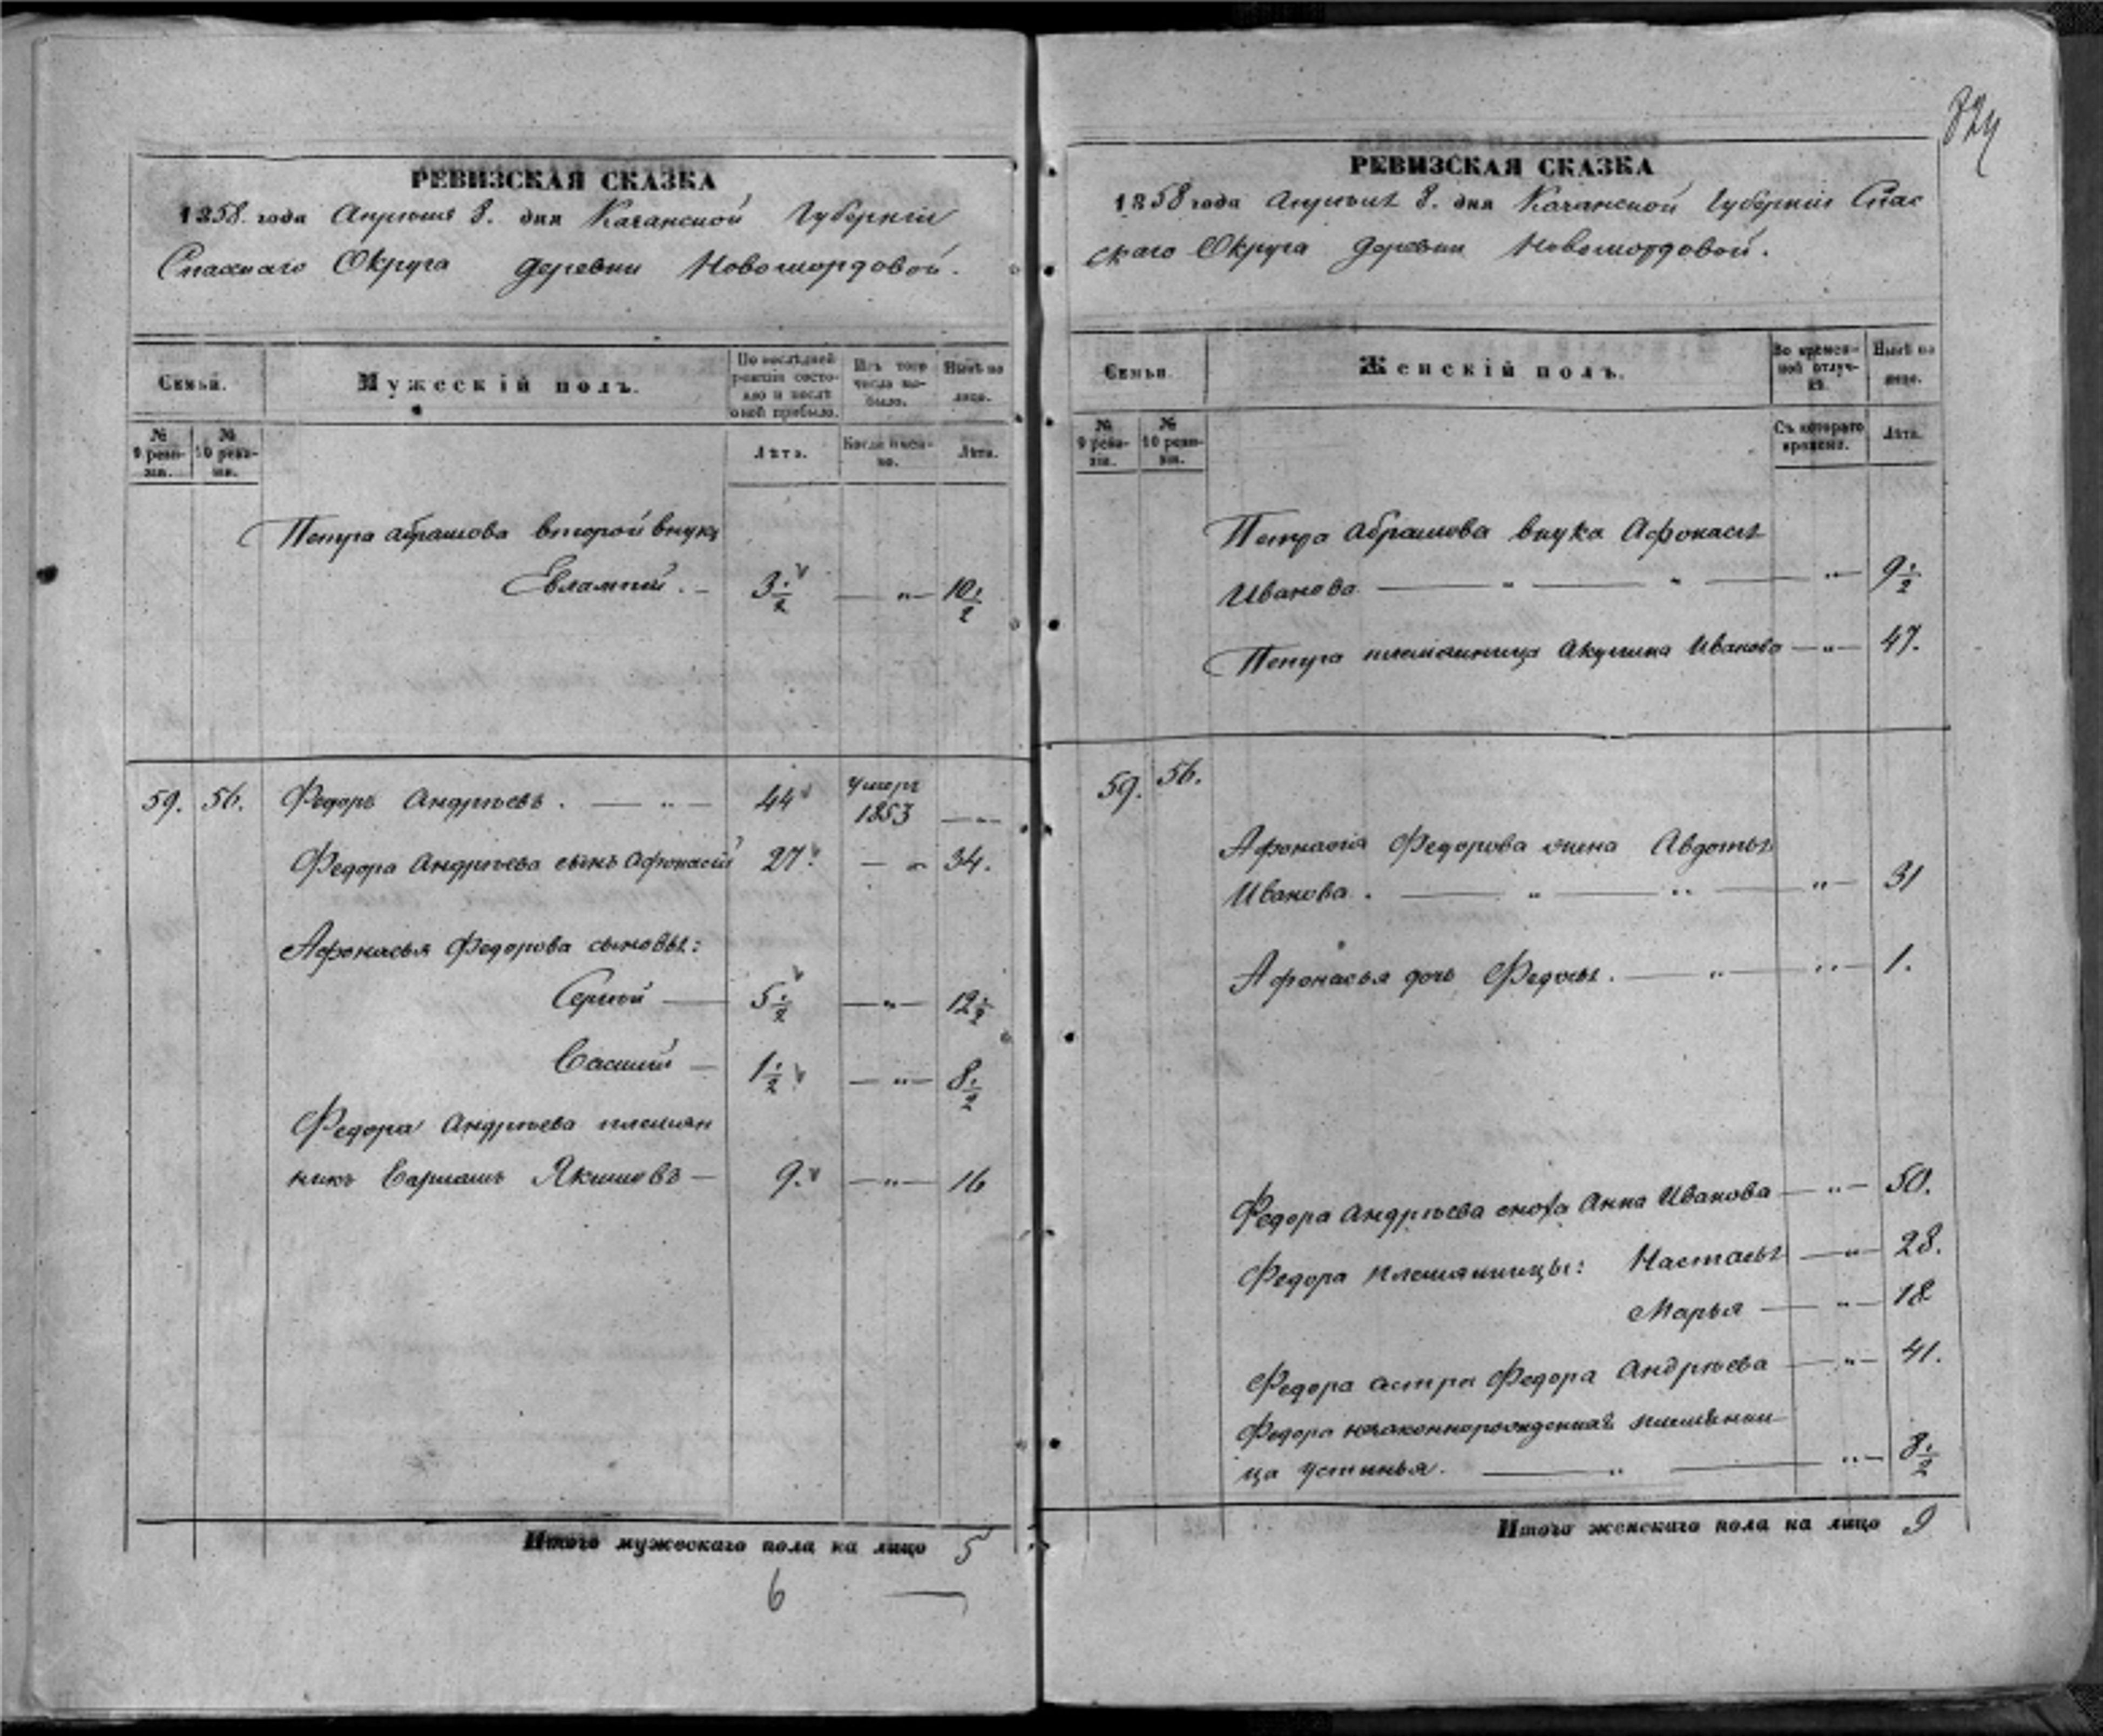 824
РЕВИЗСКАЯ СКАЗКА
1858. года Апреля 8. дня Казанской Губерніи
Спаскаго Округа деревни Новомордовой.
Семьи.
Мужескій полъ.
По послѣдней ревизіи состояло и послѣ оной прибыло.
Изъ того числа выбыло.
Нынѣ на лицо.
№ 9 ревизіи.
№ 10 ревизіи.
Лѣта.
Когда именно.
Лѣта.
Петра Абрамова второй внукъ
Евлампій. — 3 1/2 — „ — 10 1/2
59. 56. Федоръ Андрѣевъ. — „ — 44 умеръ 1853 — „
Федора Андрѣева сынъ Афонасій 27. — „ 34.
Афонасья Федорова сыновья:
Сергей — 5 1/2 — „ — 12 1/2
Василий — 1 1/2 — „ — 8 1/2
Федора Андрѣева племян
никъ Варламъ Якимовъ — 9. — „ — 16
Итого мужескаго пола на лицо 5
6
РЕВИЗСКАЯ СКАЗКА
1858 года Апреля 8. дня Казанской Губерніи Спас
скаго Округа деревни Новомордовой.
Семьи.
Женскій полъ.
Во временной отлучкѣ.
Нынѣ на лицо.
№ 9 ревизіи.
№ 10 ревизіи.
Съ котораго времени.
Лѣта.
Петра Абрамова внука Афонасья
Иванова — „ — „ — „ — 9 1/2
Петра племянница Акулина Иванова — „ — 47.
59. 56.
Афонасія Федорова жена Авдотья
Иванова. — „ — „ — „ — 31
Афонасья дочь Федосья. — „ — „ — 1.
Федора Андрѣева сноха Анна Иванова — „ — 50.
Федора племянницы: Настасья — „ — 28.
Марья — „ — 18
Федора сестра Федора Андрѣева — „ — 41.
Федора незаконнорожденная племянни
ца Устинья. — „ — „ — 8 1/2
Итого женскаго пола на лицо 9